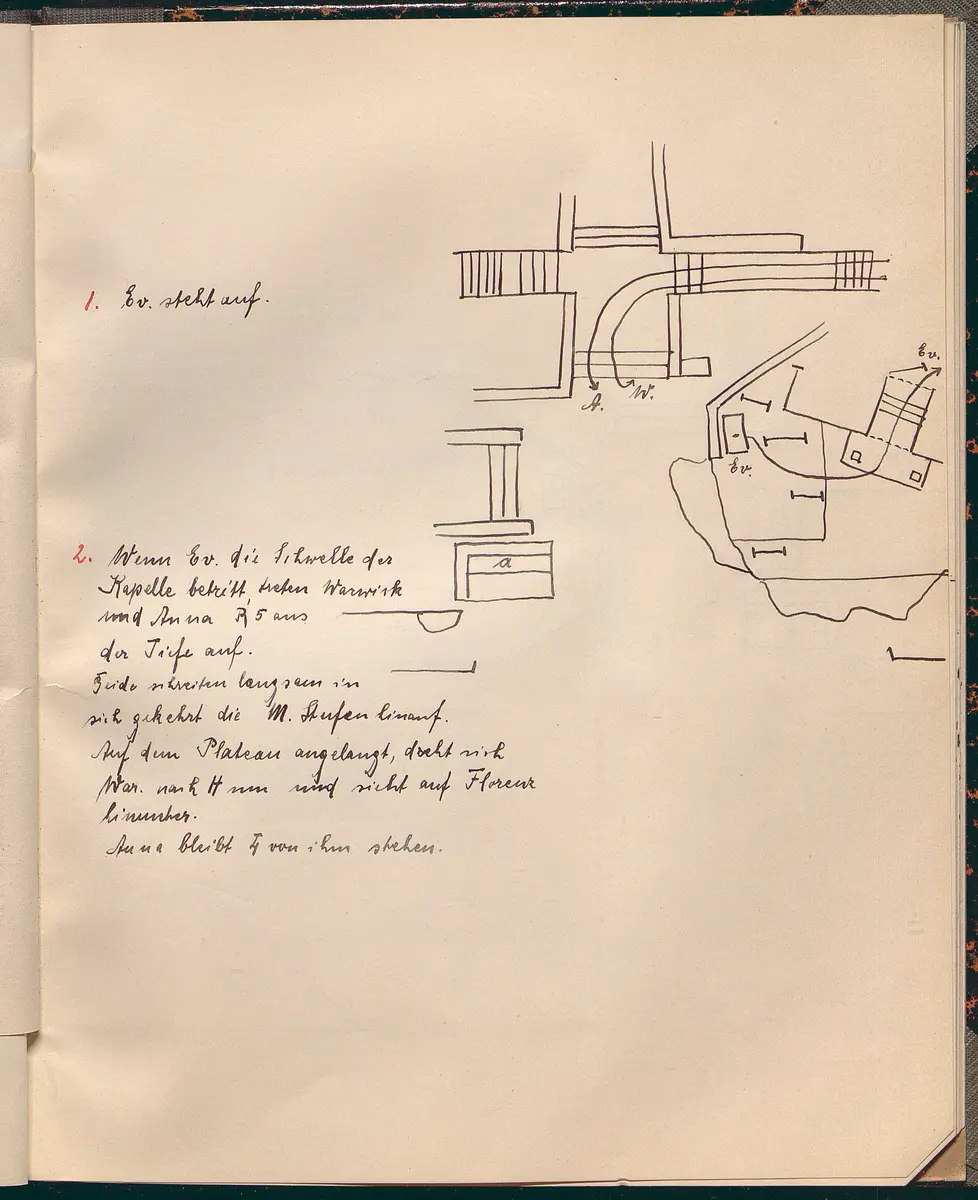 1. Ev. steht auf.
A.
W.
Ev.
Ev.
a
2. Wenn Ev. die Schwelle der
Kapelle betritt, treten Warwick
und Anna R 5 aus
der Tiefe auf.
Beide schreiten langsam in
sich gekehrt die M. Stufen hinauf.
Auf dem Plateau angelangt, dreht sich
War. nach H um und sieht auf Florenz
hinunter.
Anna bleibt von ihm stehen.